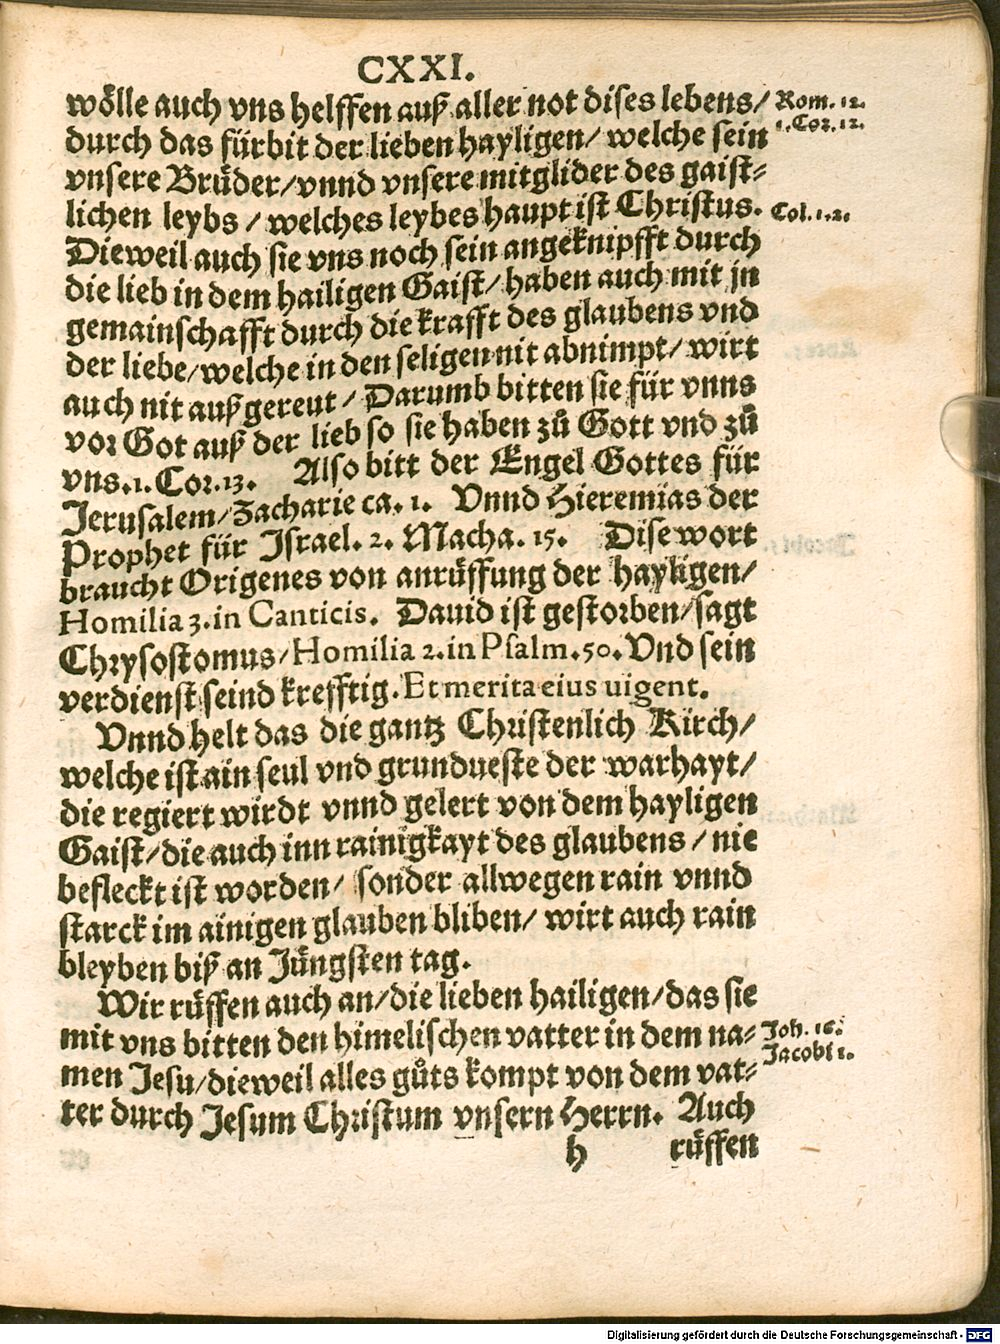 CXXI.
wölle auch vns helffen auß aller not dises lebens/ Rom. 12.
durch das fürbit der lieben hayligen/ welche sein 1. Cor. 12.
vnsere Brüder/vnnd vnsere mitglider des gaist-
lichen leybs / welches leybes haupt ist Christus. Col. 1.2.
Dieweil auch sie vns noch sein angeknipfft durch
die lieb in dem hailigen Gaist/ haben auch mit jn
gemainschafft durch die krafft des glaubens vnd
der liebe/welche in den seligen nit abnimpt/ wirt
auch nit außgereut / Darumb bitten sie für vnns
vor Got auß der lieb so sie haben zů Gott vnd zů
vns.1. Cor.13. Also bitt der Engel Gottes für
Jerusalem/Zacharie ca. 1. Vnnd Hieremias der
Prophet für Israel. 2. Macha. 15. Dise wort
braucht Origenes von anrüffung der hayligen/
Homilia 3.in Canticis. Dauid ist gestorben/sagt
Chrysostomus/Homilia 2.in Psalm.50. Vnd sein
verdienst seind krefftig. Et merita eius uigent.
Vnnd helt das die gantz Christenlich Kirch/
welche ist ain seul vnd grundueste der warhayt/
die regiert wirdt vnnd gelert von dem hayligen
Gaist/die auch inn rainigkayt des glaubens / nie
befleckt ist worden/ sonder allwegen rain vnnd
starck im ainigen glauben bliben/ wirt auch rain
bleyben biß an Jüngsten tag.
Wir rüffen auch an/die lieben hailigen/das sie
mit vns bitten den himelischen vatter in dem na- Joh. 16.
men Jesu/dieweil alles gůts kompt von dem vat- Jacobi 1.
ter durch Jesum Christum vnsern Herrn. Auch
h rüffen
Digitalisierung gefördert durch die Deutsche Forschungsgemeinschaft - DFG